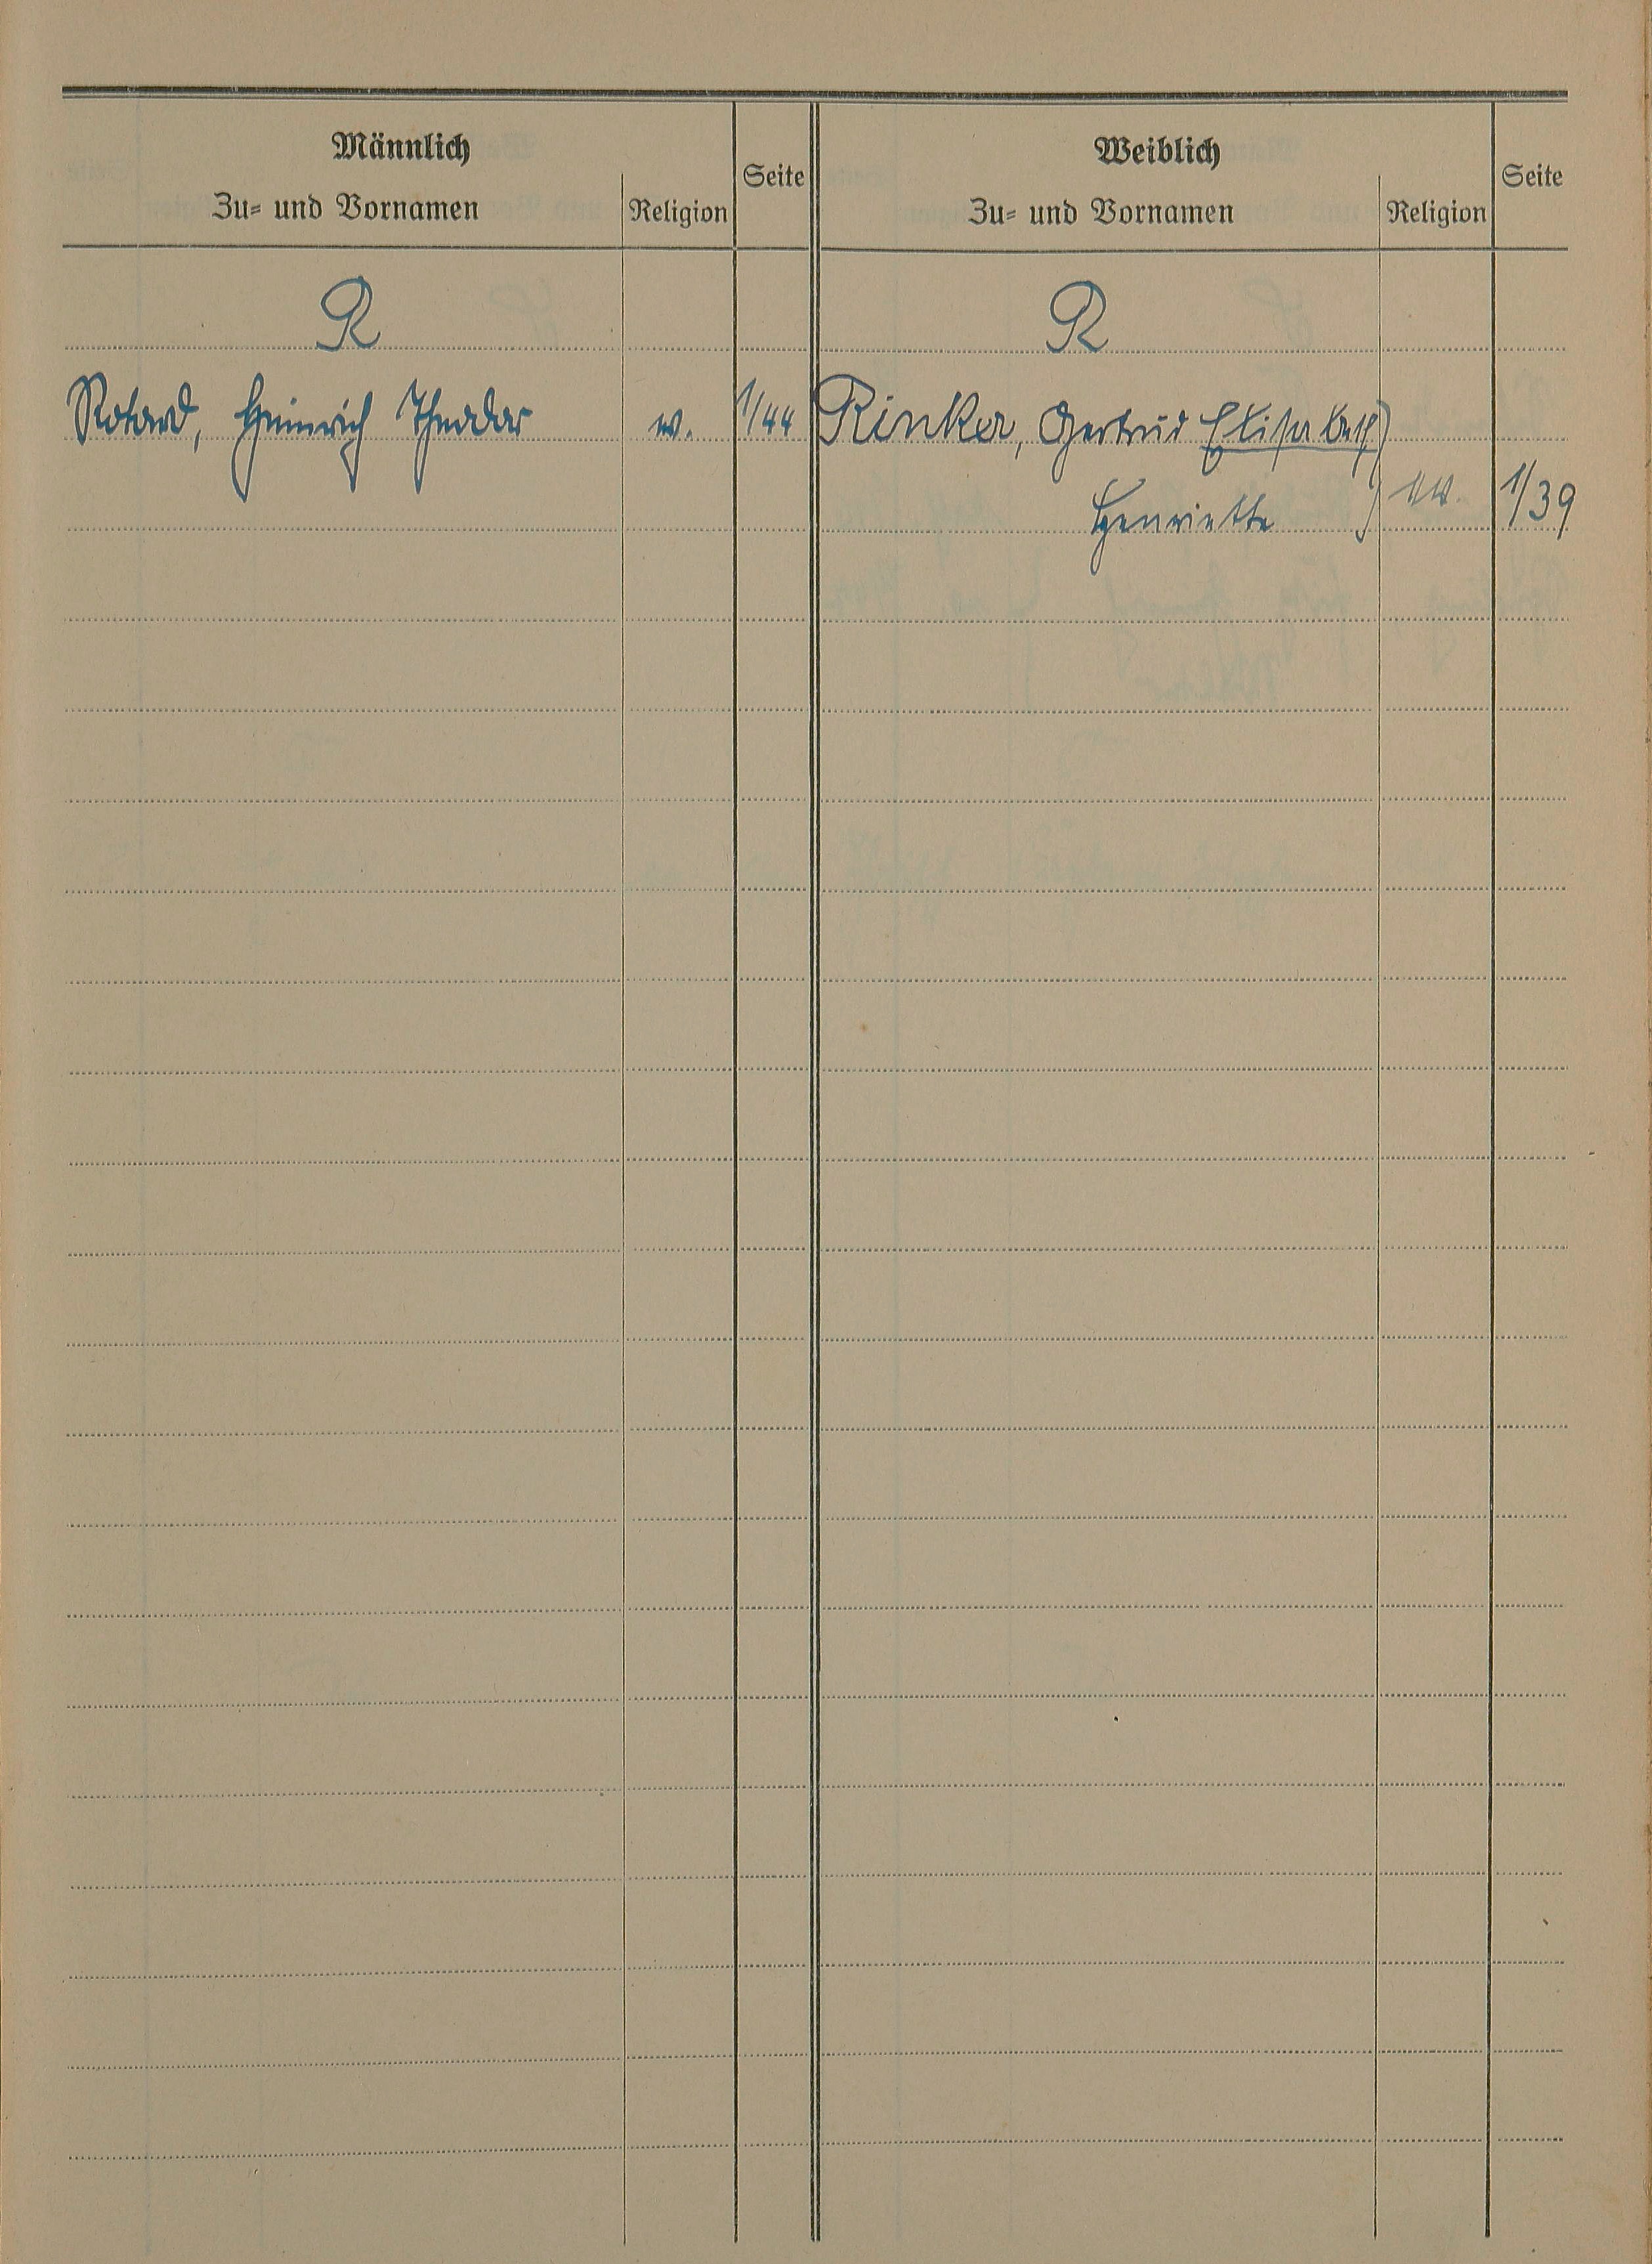 Männlich
Zu= und Vornamen
Religion
Seite
Weiblich
Zu= und Vornamen
Religion
Seite
R
R
Rotard, Heinrich Theodor
w.
1/44
Rinker, Gertrud Elisabeth
Henriette
1/39